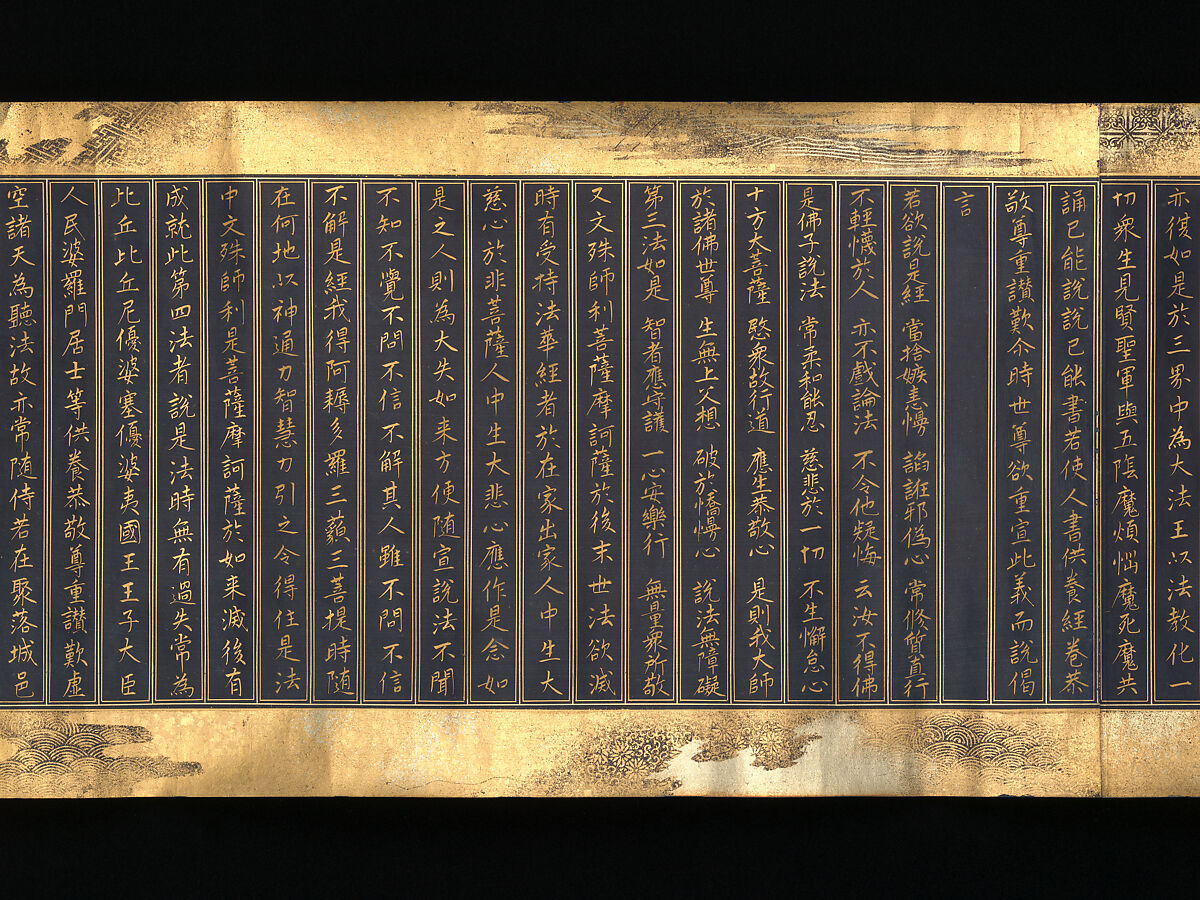 亦復如是於三界中為大法王以法教化一
切衆生見賢聖軍與五陰魔煩惱魔死魔共
誦已能說說已能書若使人書供養經卷恭
敬尊重讃歎尒時世尊欲重宣此義而說偈
言
若欲說是經 當捨嫉恚慢 諂誑邪偽心 常修質直行
不輕懱於人 亦不戲論法 不令他疑悔 云汝不得佛
是佛子說法 常柔和能忍 慈悲於一切 不生懈怠心
十方大菩薩 愍衆故行道 應生恭敬心 是則我大師
於諸佛世尊 生無上父想 破於憍慢心 說法無障礙
第三法如是 智者應守護 一心安樂行 無量衆所敬
又文殊師利菩薩摩訶薩於後末世法欲滅
時有受持法華經者於在家出家人中生大
慈心於非菩薩人中生大悲心應作是念如
是之人則為大失如来方便随宣說法不聞
不知不覺不問不信不解其人雖不問不信
不解是經我得阿耨多羅三藐三菩提時随
在何地以神通力智慧力引之令得住是法
中文殊師利是菩薩摩訶薩於如来滅後有
成就此第四法者說是法時無有過失常為
比丘比丘尼優婆塞優婆夷國王王子大臣
人民婆羅門居士等供養恭敬尊重讃歎虛
空諸天為聽法故亦常随侍若在聚落城邑